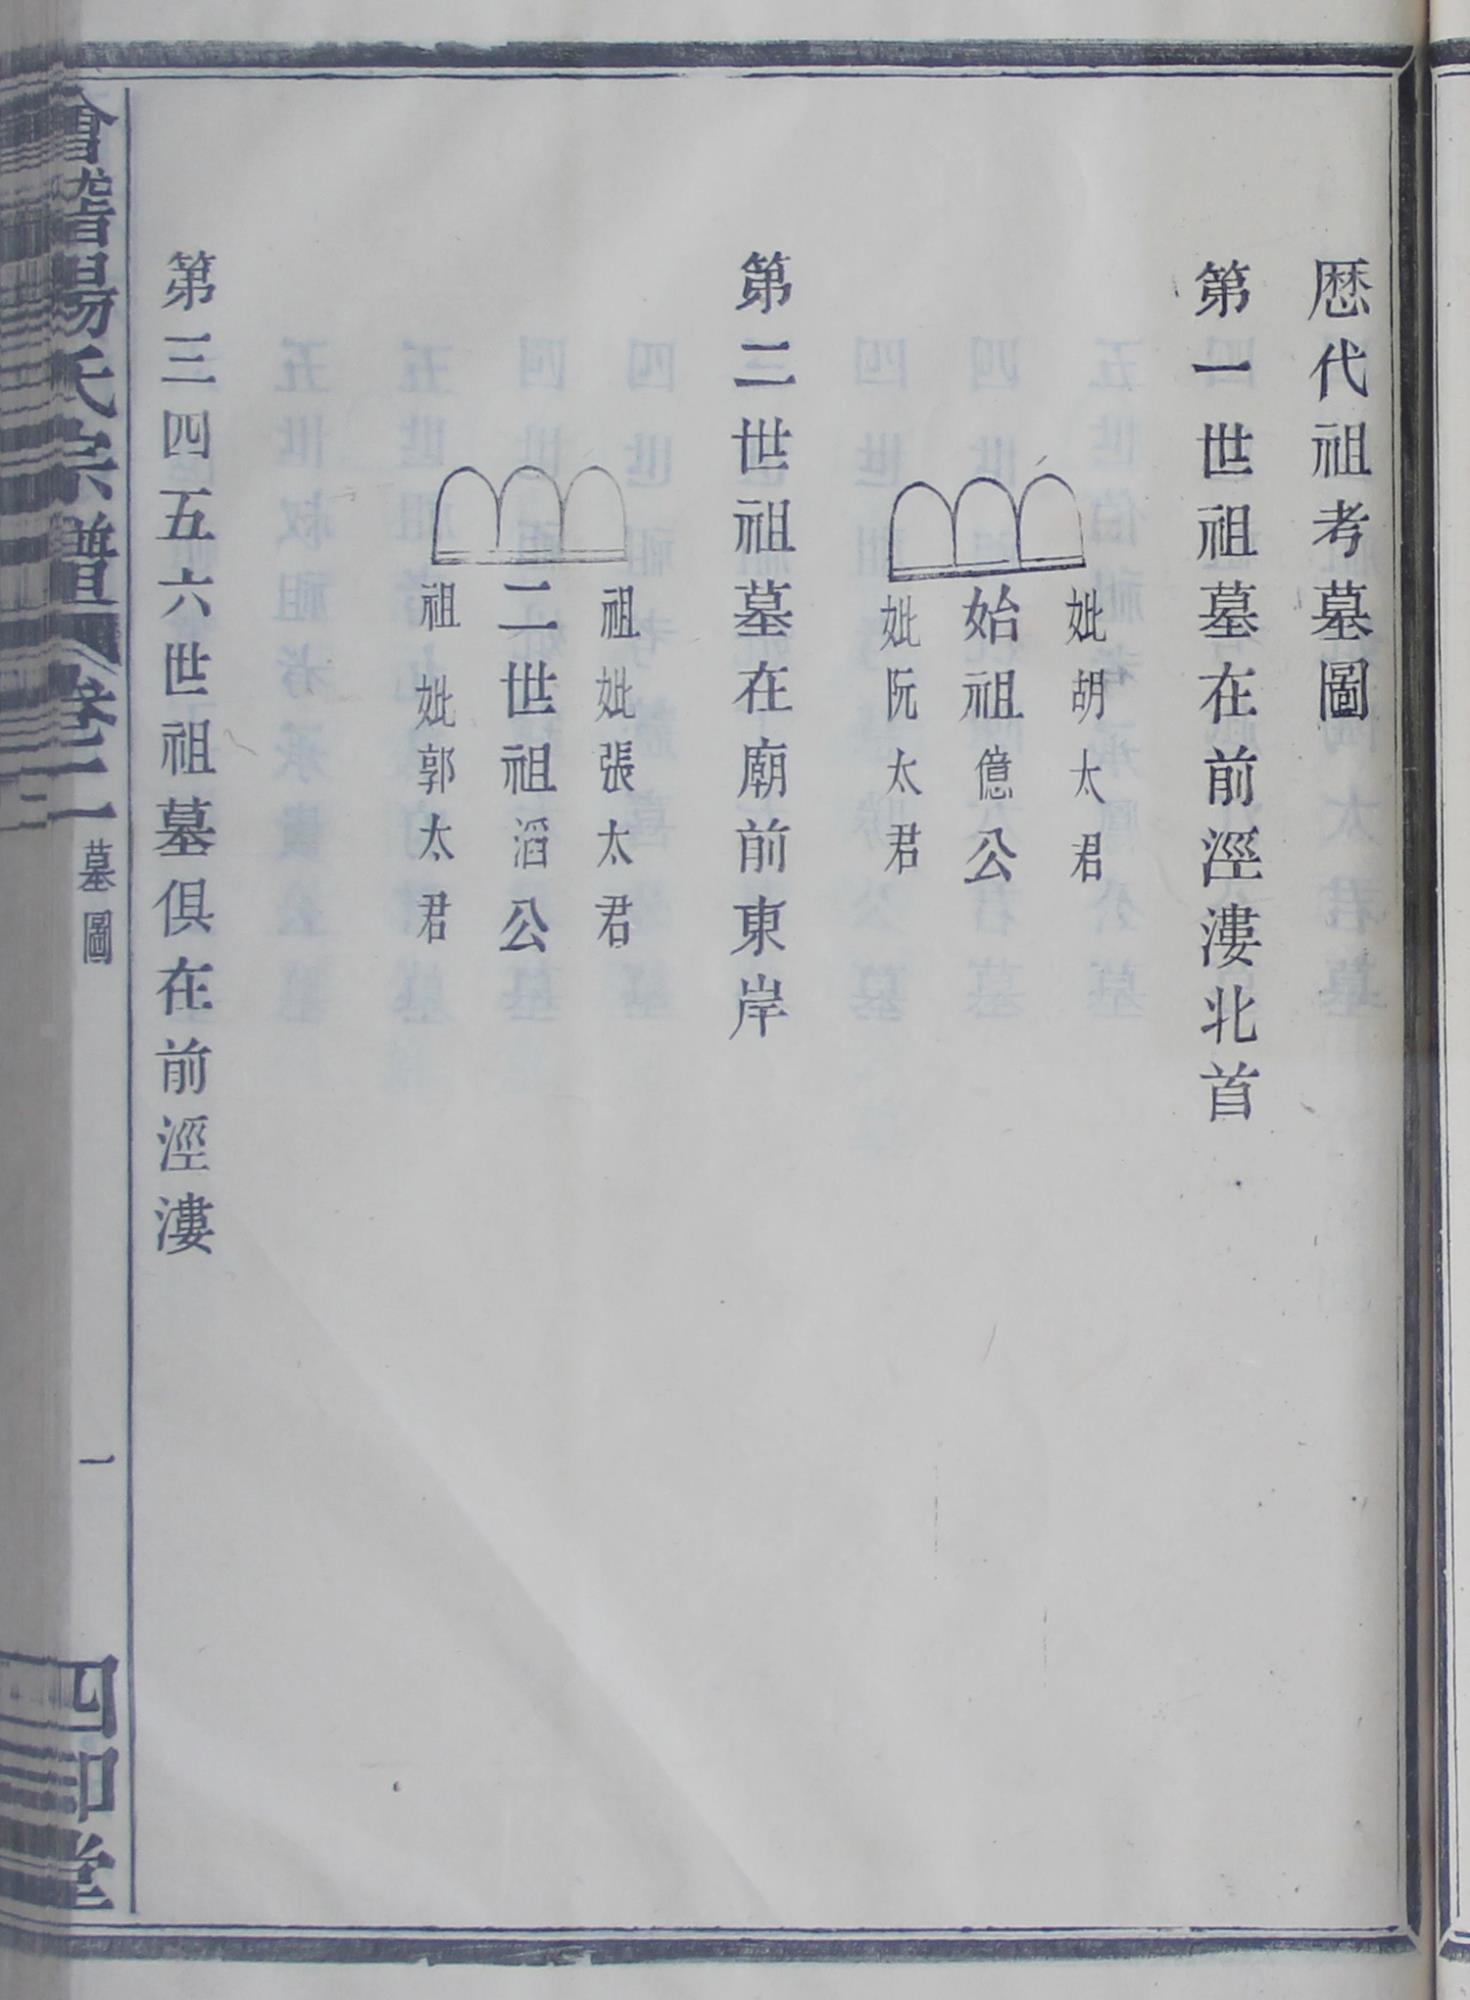 歷代祖考墓圖
第一世祖墓在前涇漊北首
妣胡太君
始祖億公
妣阮太君
第二世祖墓在廟前東岸
祖妣張太君
二世祖滔公
祖妣郭太君
第三四五六世祖墓俱在前涇漊
會稽
氏宗譜
卷二
墓圖
一
四
堂